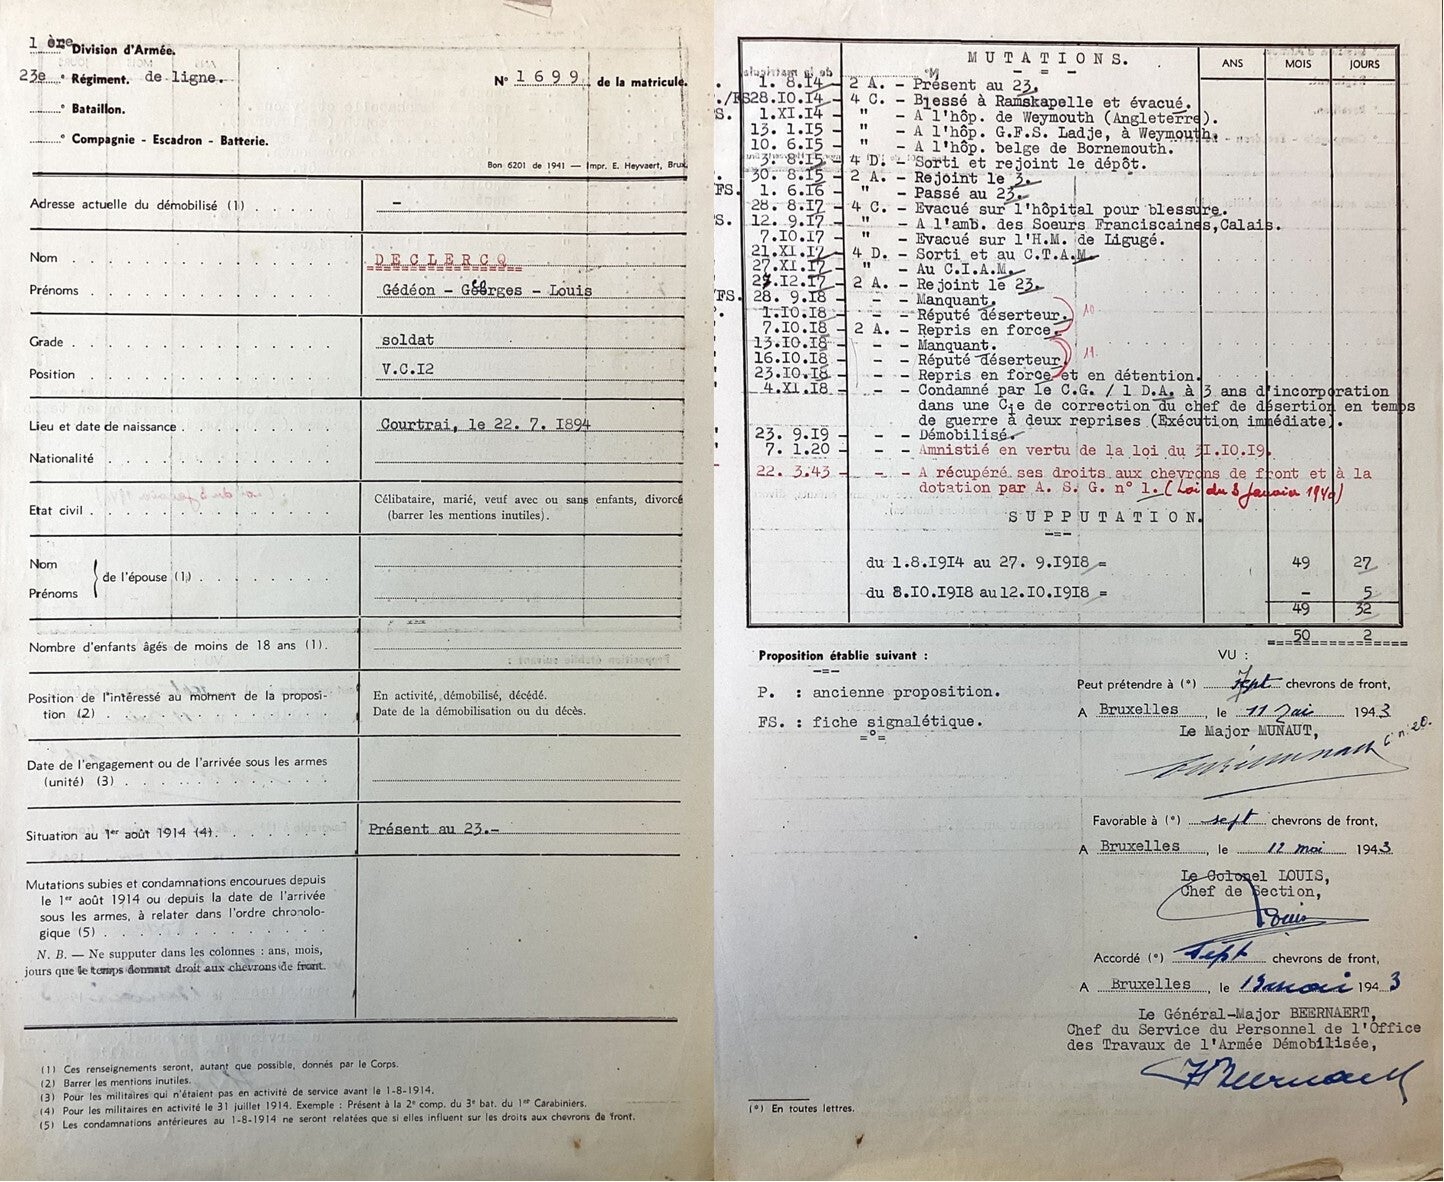 1 ère Division d'Armée.
23e ° Régiment. de ligne.
N° 1699 de la matricule.
° Bataillon.
° Compagnie - Escadron - Batterie.
Bon 6201 de 1941 — Impr. E. Heyvaert, Brux.
Adresse actuelle du démobilisé (1) . . . . –
Nom . . . . DECLERCQ
Prénoms . . . . Gédéon - Georges - Louis
Grade . . . . soldat
Position . . . . V.C.I2
Lieu et date de naissance . . . . Courtrai, le 22. 7. I894
Nationalité . . . .
Etat civil . . . . Célibataire, marié, veuf avec ou sans enfants, divorcé
(barrer les mentions inutiles).
Nom
de l'épouse (1) . . . .
Prénoms
Nombre d'enfants âgés de moins de 18 ans (1).
Position de l'intéressé au moment de la proposi- En activité, démobilisé, décédé.
tion (2) . . . . Date de la démobilisation ou du décès.
Date de l'engagement ou de l'arrivée sous les armes
(unité) (3) . . . .
Situation au 1er août 1914 (4). . . . Présent au 23.-
Mutations subies et condamnations encourues depuis
le 1er août 1914 ou depuis la date de l'arrivée
sous les armes, à relater dans l'ordre chronolo-
gique (5) . . . .
N. B. — Ne supputer dans les colonnes : ans, mois,
jours que le temps donnant droit aux chevrons de front.
(1) Ces renseignements seront, autant que possible, donnés par le Corps.
(2) Barrer les mentions inutiles.
(3) Pour les militaires qui n'étaient pas en activité de service avant le 1-8-1914.
(4) Pour les militaires en activité le 31 juillet 1914. Exemple : Présent à la 2e comp. du 3e bat. du 1er Carabiniers.
(5) Les condamnations antérieures au 1-8-1914 ne seront relatées que si elles influent sur les droits aux chevrons de front.
MUTATIONS. ANS MOIS JOURS
- = -
1. 8.14 - 2 A. - Présent au 23.
/FS 28.10.14 - 4 C. - Blessé à Ramskapelle et évacué.
S. 1.XI.14 - " - A l'hôp. de Weymouth (Angleterre).
13. 1.15 - " - A l'hôp. G.F.S. Ladje, à Weymouth.
10. 6.15 - " - A l'hôp. belge de Bornemouth.
3. 8.15 - 4 D. - Sorti et rejoint le dépôt.
30. 8.15 - 2 A. - Rejoint le 3.
FS. 1. 6.16 - " - Passé au 23.
28. 8.17 - 4 C. - Evacué sur l'hôpital pour blessure.
S. 12. 9.17 - " - A l'amb. des Soeurs Franciscaines, Calais.
7.10.17 - " - Evacué sur l'H.M. de Ligugé.
21.XI.17 - 4 D. - Sorti et au C.T.A.M.
27.XI.17 - " - Au C.I.A.M.
27.12.17 - 2 A. - Rejoint le 23.
FS. 28. 9.18 - - - Manquant.
1.10.18 - - - Réputé déserteur. 10
7.10.18 - 2 A. - Repris en force.
13.10.18 - - - Manquant.
16.10.18 - - - Réputé déserteur. 11
23.10.18 - - - Repris en force et en détention.
4.XI.18 - - - Condamné par le C.G. / 1 D.A. à 3 ans d'incorporation
dans une Cie de correction du chef de désertion en temps
de guerre à deux reprises (Exécution immédiate).
23. 9.19 - - - Démobilisé.
7. 1.20 - - - Amnistié en vertu de la loi du 31.10.19.
22. 3.43 - - - A récupéré ses droits aux chevrons de front et à la
dotation par A. S. G. n° 1. (Loi du 3 Janvier 1940)
SUPPUTATION.
-=-
du 1.8.I9I4 au 27. 9.I9I8 = 49 27
du 8.I0.I9I8 au I2.I0.I9I8 = - 5
49 32
50 2
Proposition établie suivant :
-=-
P. : ancienne proposition.
FS. : fiche signalétique.
=°=
VU :
Peut prétendre à (*) sept chevrons de front,
A Bruxelles, le 11 Mai 1943
Le Major MUNAUT,
Favorable à (*) sept chevrons de front,
A Bruxelles, le 12 mai 1943
Le Colonel LOUIS,
Chef de Section,
Louis
Accordé (*) Sept chevrons de front,
A Bruxelles, le 13 mai 1943
Le Général-Major BEERNAERT,
Chef du Service du Personnel de l'Office
des Travaux de l'Armée Démobilisée,
(*) En toutes lettres.